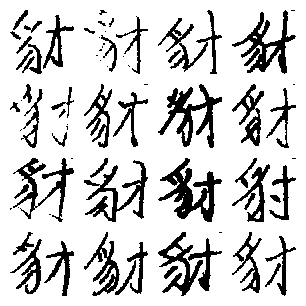 豺豺豺豺
豺豺豺豺
豺豺豺豺
豺豺豺豺